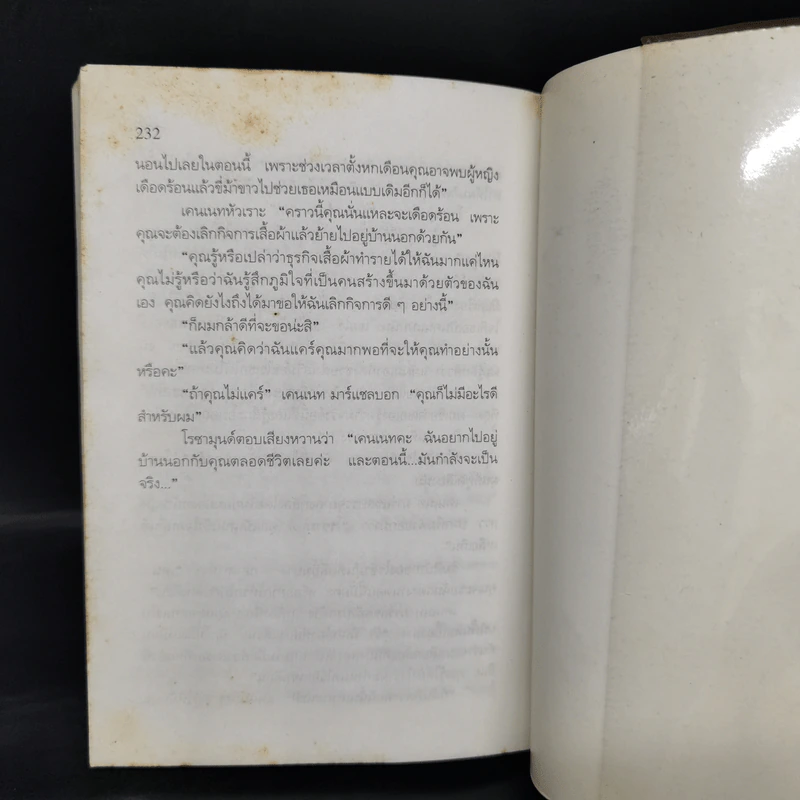 232
นอนไปเลยในตอนนี้ เพราะช่วงเวลาตั้งหกเดือนคุณอาจพบผู้หญิง
เดือดร้อนแล้วขี่ม้าขาวไปช่วยเธอเหมือนแบบเดิมอีกก็ได้”
เคนเนทหัวเราะ “คราวนี้คุณนั่นแหละจะเดือดร้อน เพราะ
คุณจะต้องเลิกกิจการเสื้อผ้าแล้วย้ายไปอยู่บ้านนอกด้วยกัน”
“คุณรู้หรือเปล่าว่าธุรกิจเสื้อผ้าทำรายได้ให้ฉันมากแค่ไหน
คุณไม่รู้หรือว่าฉันรู้สึกภูมิใจที่เป็นคนสร้างขึ้นมาด้วยตัวของฉัน
เอง คุณคิดยังไงถึงได้มาขอให้ฉันเลิกกิจการดี ๆ อย่างนี้”
“ก็ผมกล้าดีที่จะขอน่ะสิ”
“แล้วคุณคิดว่าฉันแคร์คุณมากพอที่จะให้คุณทำอย่างนั้น
หรือคะ”
“ถ้าคุณไม่แคร์” เคนเนท มาร์แชลบอก “คุณก็ไม่มีอะไรดี
สำหรับผม”
โรซามุนด์ตอบเสียงหวานว่า “เคนเนทคะ ฉันอยากไปอยู่
บ้านนอกกับคุณตลอดชีวิตเลยค่ะ และตอนนี้...มันกำลังจะเป็น
จริง...”